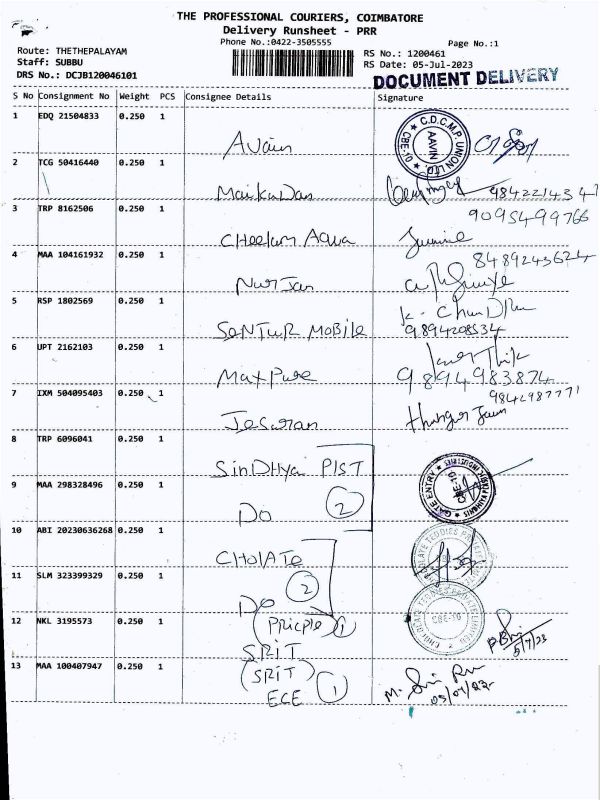 THE PROFESSIONAL COURIERS, COIMBATORE
Delivery Runsheet - PRR
Phone No.:0422-3505555
Page No.:1
Route: THETHEPALAYAM
RS No.: 1200461
Staff: SUBBU
RS Date: 05-Jul-2023
DRS No.: DCJB120046101
DOCUMENT DELIVERY
S No Consignment No Weight PCS Consignee Details Signature
1 EDQ 21504833 0.250 1
C.D.C.M.P. UNION LTD. AAVIN CBE-10
Avain
2 TCG 50416440 0.250 1
Maikudan
9842214347
3 TRP 8162506 0.250 1
9095499766
Cheelam Aqua
4 MAA 104161932 0.250 1
8489243624
Nur Jan
5 RSP 1802569 0.250 1
SENTUR MOBILE
9894208534
6 UPT 2162103 0.250 1
Max Pure
9894983874
7 IXM 504095403 0.250 1
9842987771
Jesuran
8 TRP 6096041 0.250 1
SinDHya PIST
9 MAA 298328496 0.250 1
GATE ENTRY
CBE-10
DO 2
10 ABI 20230636268 0.250 1
CHOLATE
11 SLM 323399329 0.250 1
DO 2
12 NKL 3195573 0.250 1
(Pricple) 1
CBE-10
5/7/23
SRIT
13 MAA 100407947 0.250 1
(SRIT)
ECE 1